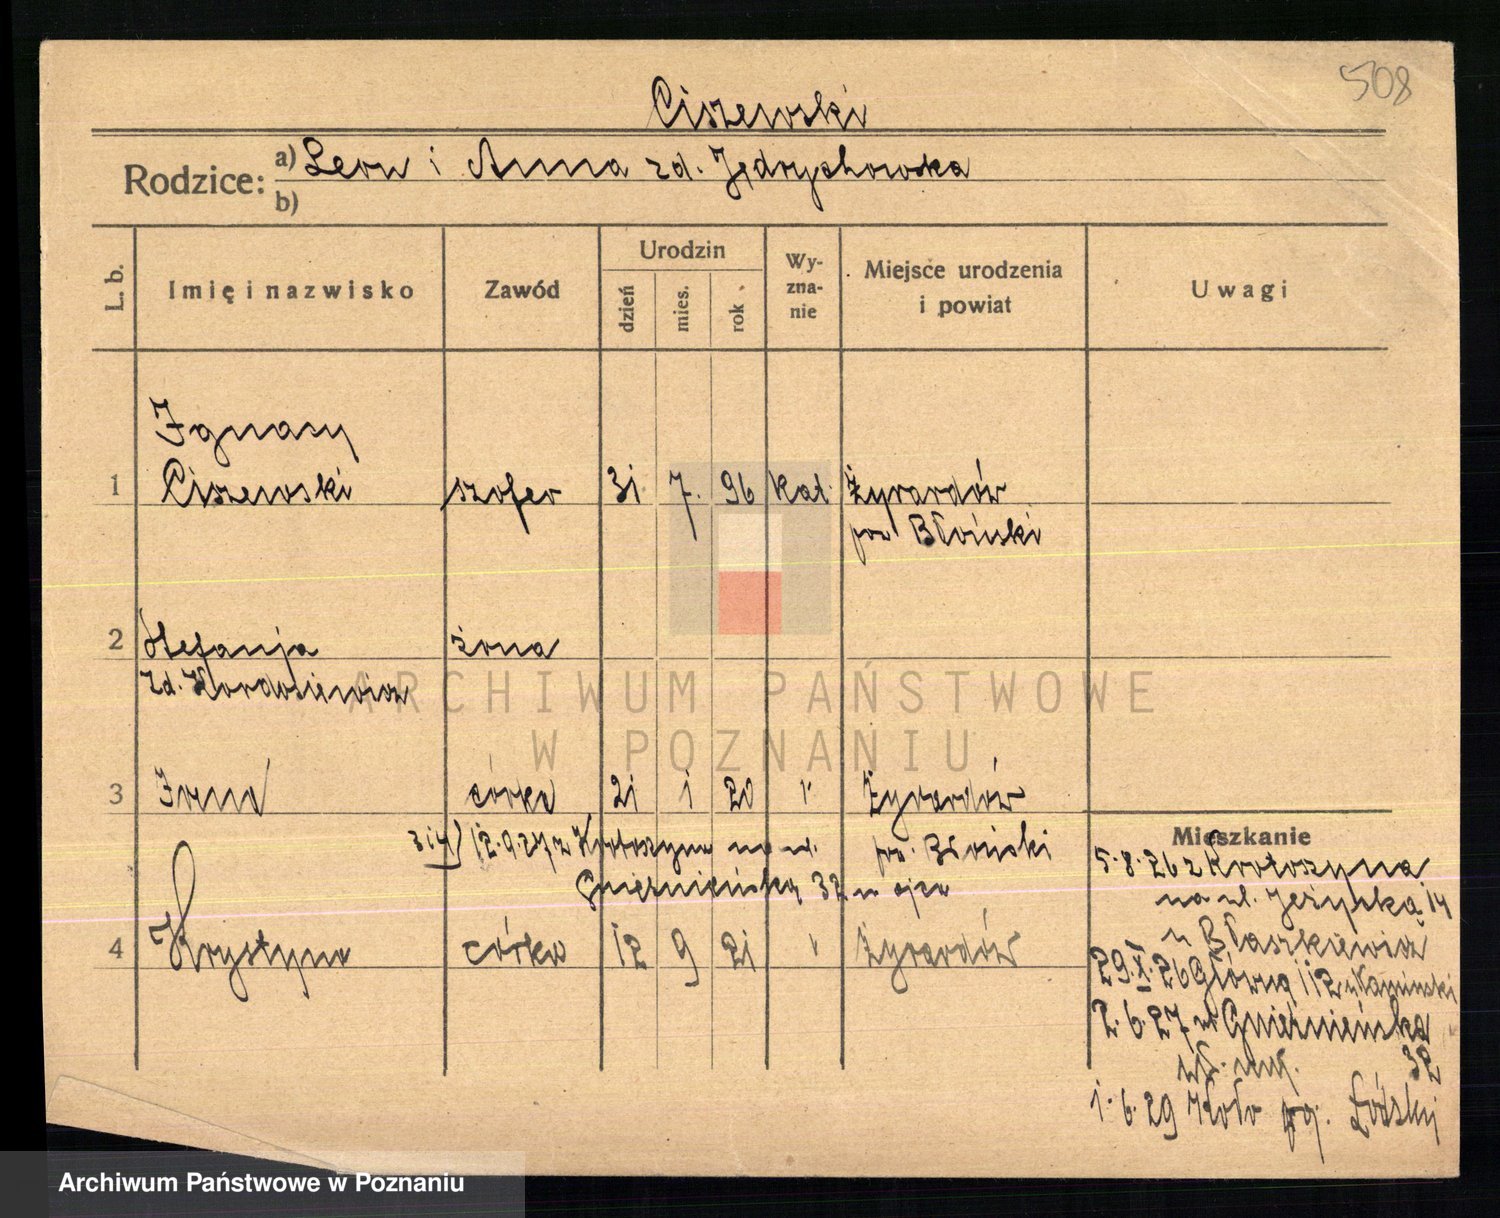 508
Ciszewski
Rodzice: a) Leon i Anna zd. Jędrychowska
b)
L. b. Imię i nazwisko Zawód Urodzin dzień mies. rok Wyznanie Miejsce urodzenia i powiat Uwagi
Ignacy
1 Ciszewski szofer 31 7. 96 kat. Żyrardów
pow Błoński
2 Stefanja żona
zd.
3 Irena córka 21 1 20 " Żyrardów
3 i 4) 12.9.27 z Krotoszyna na ul. pow. Błoński
Gnieźnieńską 32 u ojca
4 Krystyna córka 12 9 21 " Żyrardów
Mieszkanie
5.8.26 z Krotoszyna
na ul. Jeżycką 14
u Błaszkiewicz
29.X.26 Główna 112 u Kamiński
2.6.27 ul Gnieźnieńska
32
wł. m.
1.6.29 Koło pow. Łódzki
ARCHIWUM PAŃSTWOWE
W POZNANIU
Archiwum Państwowe w Poznaniu